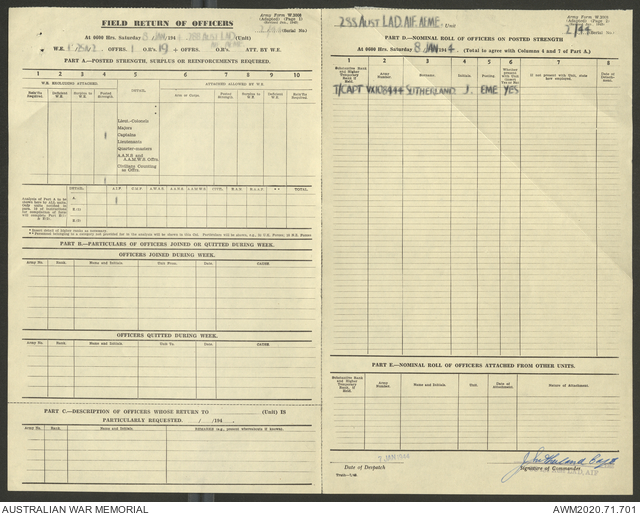 FIELD RETURN OF OFFICERS
Army Form W.3008
(Adapted) (Page 1)
At 0600 Hrs. Saturday 8 JAN 1944 288 AUST LAD (Unit)
(Serial No.)
W.E. OFFRS. 1 O.R's 19 + OFFRS. O.R's ATT. BY W.E.
PART A.—POSTED STRENGTH, SURPLUS OR REINFORCEMENTS REQUIRED.
1 2 3 4 5 6 7 8 9 10
W.E. EXCLUDING ATTACHED.
DETAIL.
ATTACHED ALLOWED BY W.E.
Rein'ts Required. Deficient W.E. Surplus to W.E. Posted Strength. Arm or Corps. Posted Strength. Surplus to W.E. Deficient W.E. Rein'ts Required.
Lieut.-Colonels
Majors
Captains
Lieutenants
Quarter-masters
A.A.N.S. and A.A.M.W.S. Offrs.
Civilians Counting as Offrs.
DETAIL. A.I.F. C.M.F. A.W.A.S. A.A.N.S. A.A.M.W.S. CIVS. R.A.N. R.A.A.F. TOTAL.
PART B.—PARTICULARS OF OFFICERS JOINED OR QUITTED DURING WEEK.
OFFICERS JOINED DURING WEEK.
Army No. Rank. Name and Initials. Unit From. Date. CAUSE.
OFFICERS QUITTED DURING WEEK.
Army No. Rank. Name and Initials. Unit To. Date. CAUSE.
PART C.—DESCRIPTION OF OFFICERS WHOSE RETURN TO (Unit) IS
PARTICULARLY REQUESTED. / /194
Army No. Rank. Name and Initials. REMARKS (e.g., present whereabouts if known).
288 AUST LAD. AIF. AEME. Unit
Army Form W.3008
(Adapted) (Page 2)
2/44
(Serial No.)
PART D—NOMINAL ROLL OF OFFICERS ON POSTED STRENGTH
At 0600 Hrs. Saturday 8 JAN 1944. (Total to agree with Columns 4 and 7 of Part A.)
1 2 3 4 5 6 7 8
Substantive Rank and Higher Temporary Rank if Held. Army Number. Name. Initials. Posting. Whether present with Unit (insert Yes or No). If not present with Unit, state how employed. Date of Departure.
T/CAPT VX108444 SUTHERLAND J. EME YES
PART E.—NOMINAL ROLL OF OFFICERS ATTACHED FROM OTHER UNITS.
Substantive Rank and Higher Temporary Rank, if Held. Army Number. Name and Initials. Unit. Date of Attachment. Nature of Attachment.
7 JAN 1944
Date of Despatch
J Sutherland Capt
Signature of Commander
AUSTRALIAN WAR MEMORIAL
AWM2020.71.701